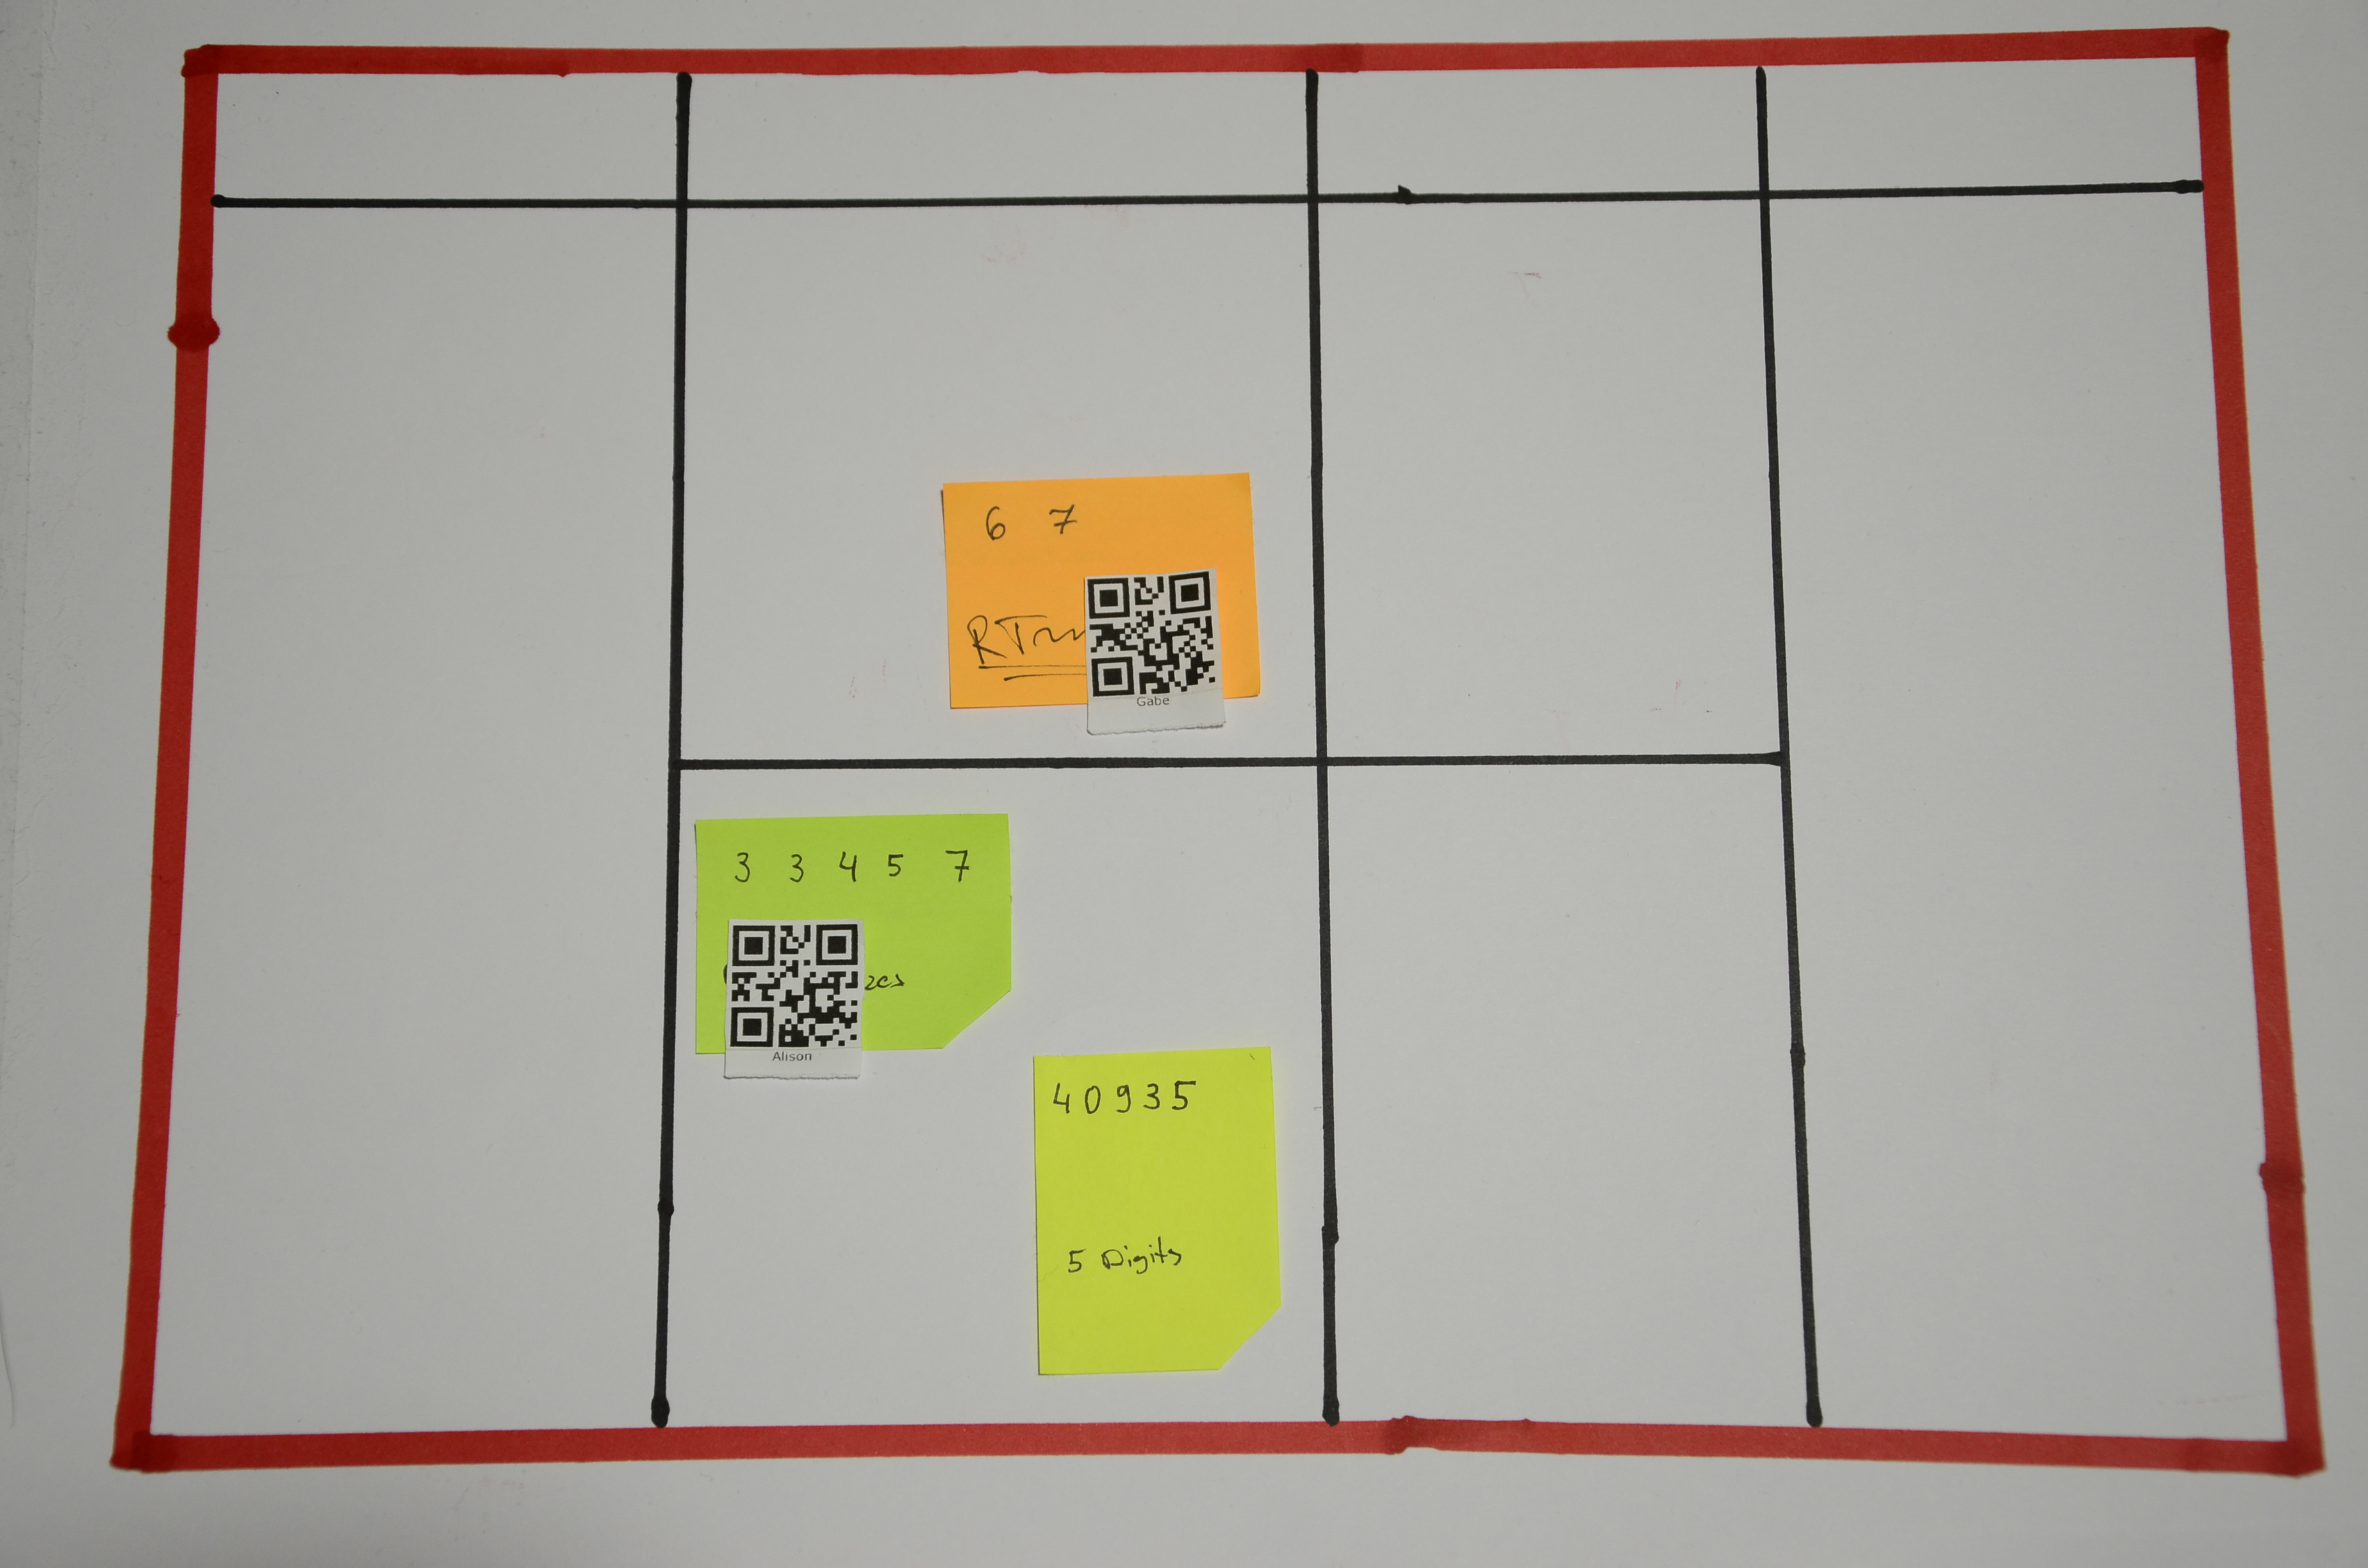 6 7
Gabe
3 3 4 5 7
Alison
40935
5 Digits